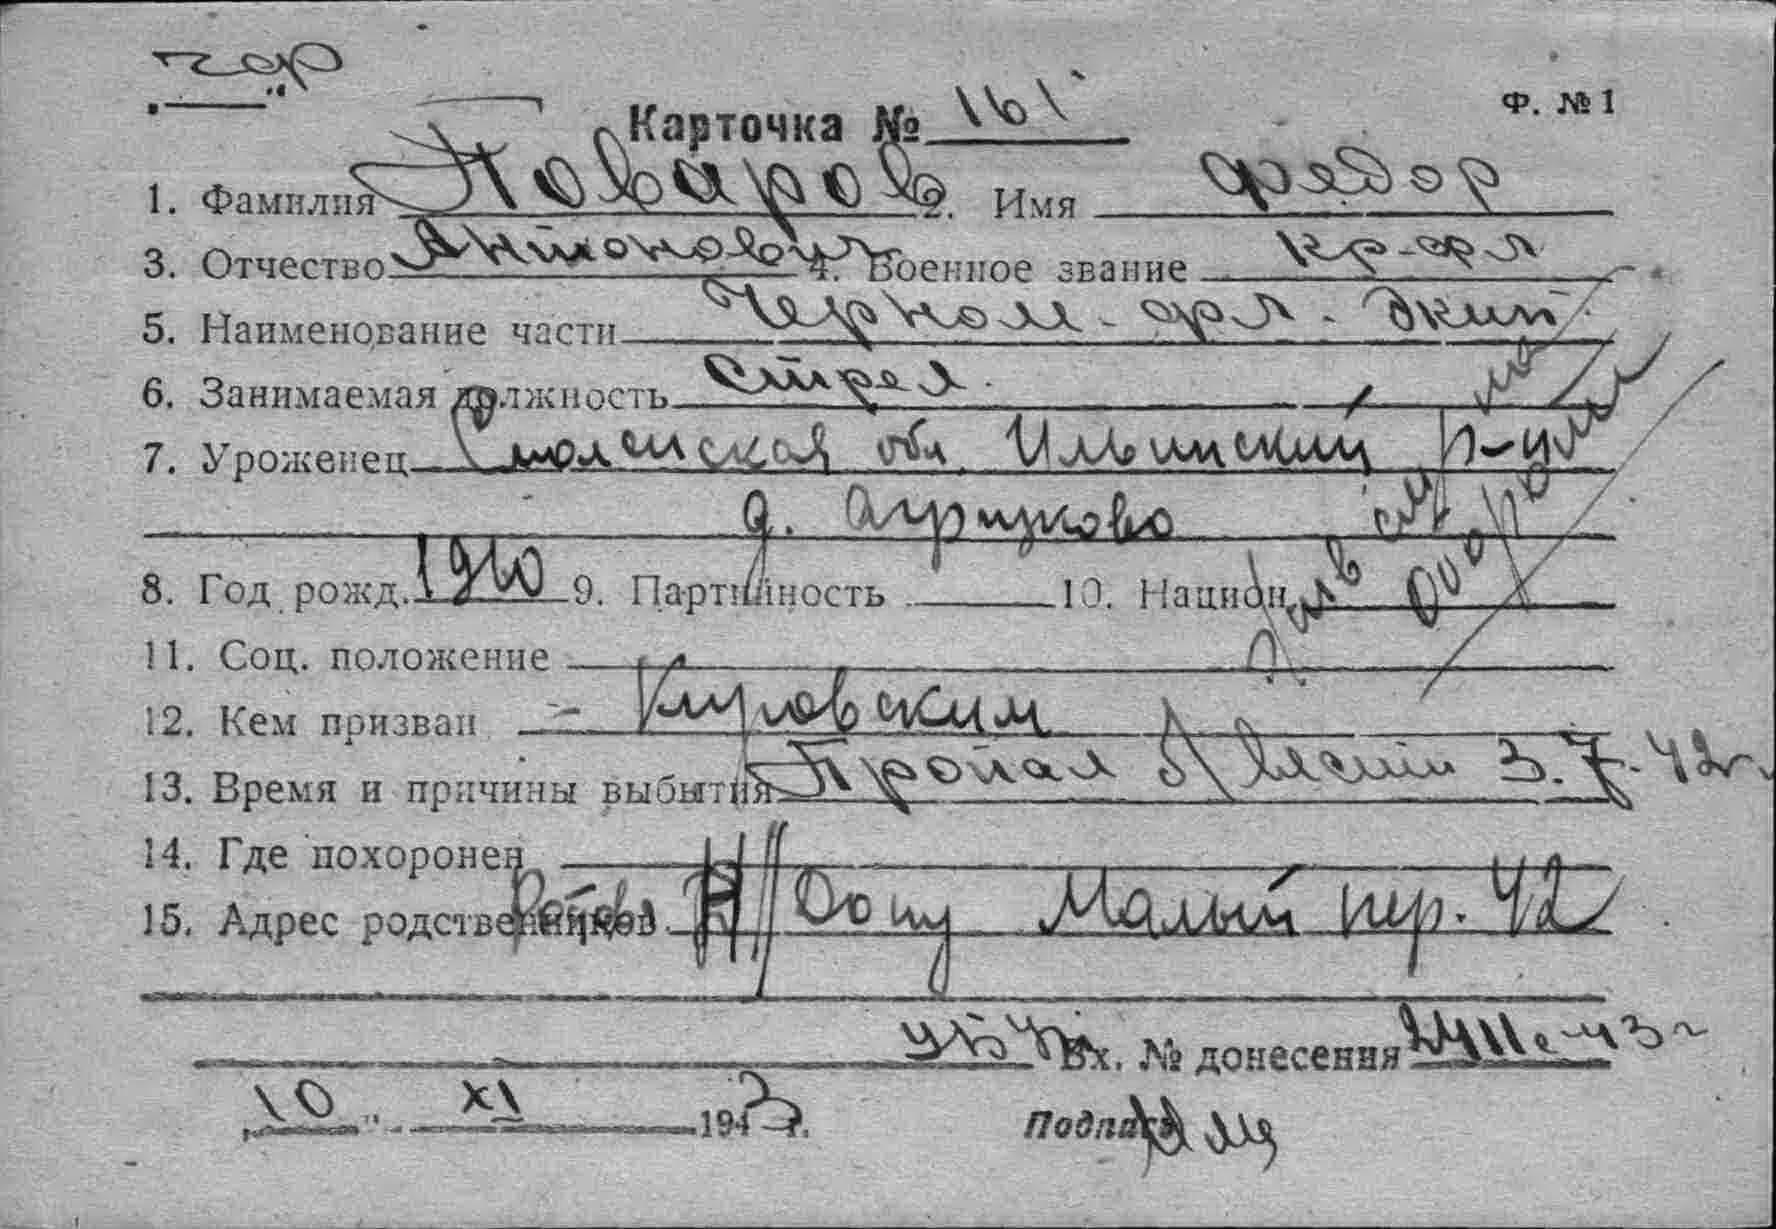 Ф. № 1
Карточка № 161
1. Фамилия Поваров 2. Имя Федор
3. Отчество Антонович 4. Военное звание кр-фл
5. Наименование части Черном. фл. Экип.
6. Занимаемая должность Стрел.
7. Уроженец Смоленская обл. Ильинский р-н
д.
8. Год рожд. 1910 9. Партийность 10. Национ.
11. Соц. положение
12. Кем призван - Кировским
13. Время и причины выбытия Пропал б/вести 3.7.42 г.
14. Где похоронен
15. Адрес родственников Ростов н/Дону Малый пер. 42
Вх. № донесения 43 г
10 " XI 1943 г.
Подпись